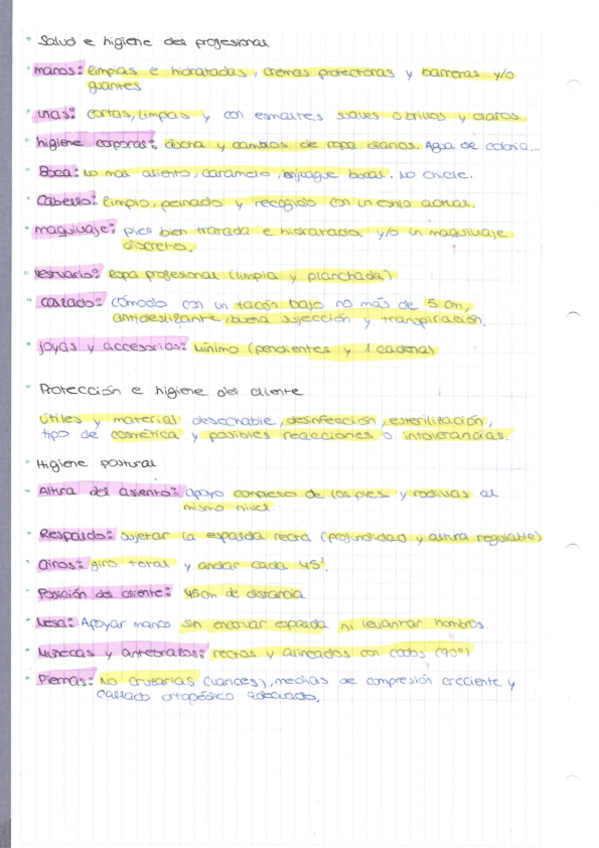 Salud e higiene del profesional
manos: limpias e hidratadas, cremas protectoras y barreras y/o
guantes
uñas: cortas, limpias y con esmaltes suaves o brillos y claros.
higiene corporal: ducha y cambios de ropa diarios. Agua de colonia...
Boca: No mal aliento, caramelo, enjuague bucal. No chicle.
Cabello: limpio, peinado y recogido con un estilo actual.
maquillaje: piel bien tratada e hidratada y/o un maquillaje
discreto.
vestuario: Ropa profesional (limpia y planchada)
calzado: cómodo con un tacón bajo no más de 5 cm,
antideslizante, buena sujección y transpiración.
Joyas y accesorios: mínimo (pendientes y 1 cadena)
Protección e higiene del cliente
útiles y material desechable, desinfección, esterilización,
tipo de cosmética y posibles reacciones o intolerancias.
Higiene postural
Altura del asiento: apoyo completo de los pies y rodillas al
mismo nivel.
Respaldo: sujetar la espalda recta (profundidad y altura regulable)
Giros: giro total y andar cada 45'.
Posición del cliente: 45cm de distancia
Mesa: Apoyar manos sin encorvar espalda ni levantar hombros.
Muñecas y antebrazos: rectos y alineados con codos (90º)
Piernas: No cruzarlas (varices), medias de compresión creciente y
calzado ortopédico adecuado.